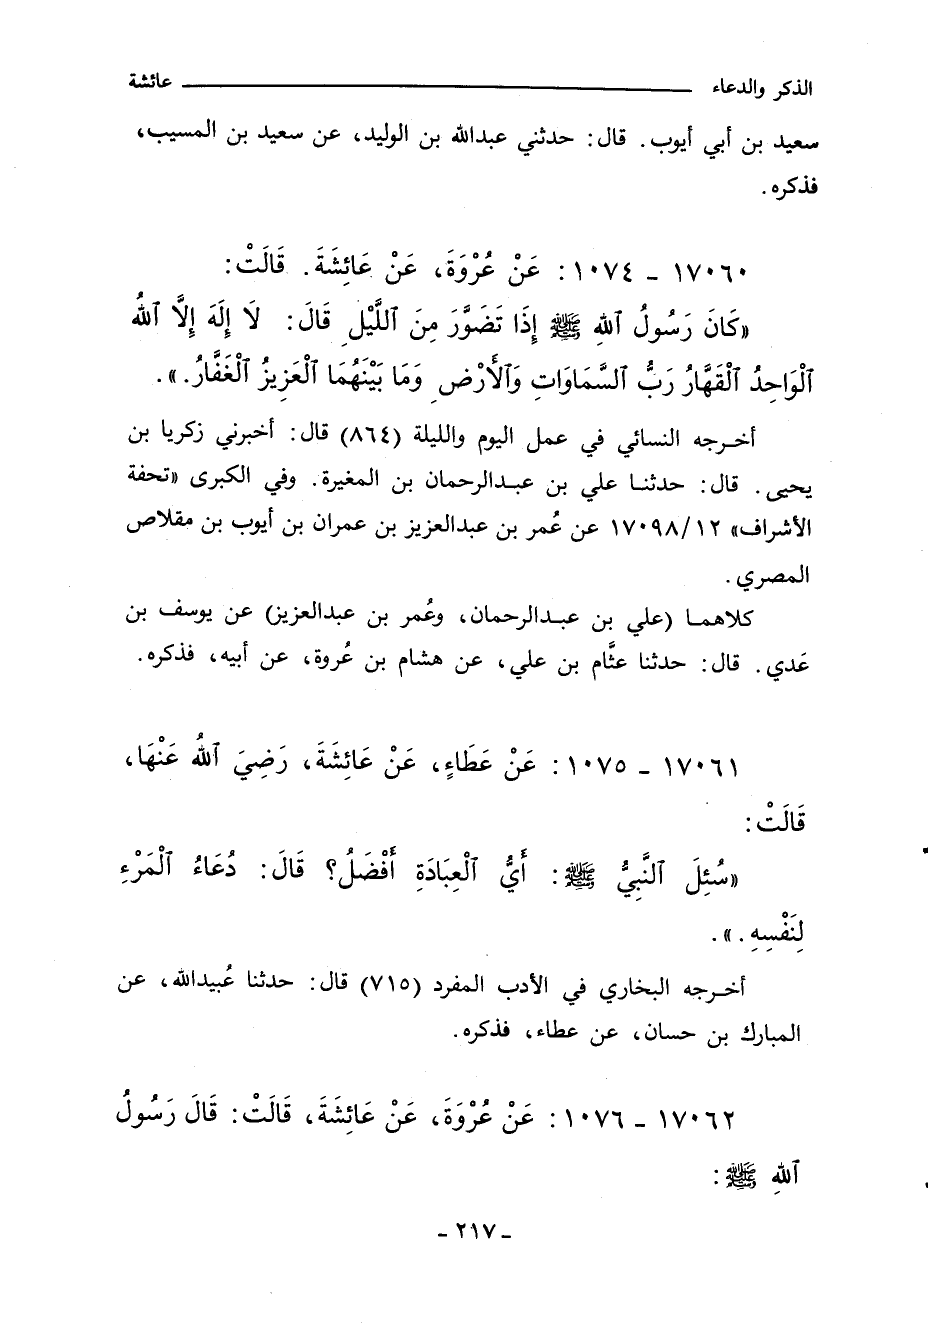 الذكر والدعاء عائشة
سعيد بن أبي أيوب. قال: حدثني عبدالله بن الوليد، عن سعيد بن المسيب،
فذكره.
١٧٠٦٠ - ١٠٧٤: عَنْ عُرْوَةَ، عَنْ عَائِشَةَ. قَالَتْ:
«كَانَ رَسُولُ ٱللهِ ﷺ إِذَا تَضَوَّرَ مِنَ ٱللَّيْلِ قَالَ: لَا إِلَهَ إِلَّا ٱللهُ
ٱلْوَاحِدُ ٱلْقَهَّارُ رَبُّ ٱلسَّمَاوَاتِ وَٱلْأَرْضِ وَمَا بَيْنَهُمَا ٱلْعَزِيزُ ٱلْغَفَّارُ.».
أخرجه النسائي في عمل اليوم والليلة (٨٦٤) قال: أخبرني زكريا بن
يحيى. قال: حدثنا علي بن عبدالرحمان بن المغيرة. وفي الكبرى «تحفة
الأشراف» ١٧٠٩٨/١٢ عن عُمر بن عبدالعزيز بن عمران بن أيوب بن مقلاص
المصري.
كلاهما (علي بن عبدالرحمان، وعُمر بن عبدالعزيز) عن يوسف بن
عَدي. قال: حدثنا عثَّام بن علي، عن هشام بن عُروة، عن أبيه، فذكره.
١٧٠٦١ - ١٠٧٥: عَنْ عَطَاءٍ، عَنْ عَائِشَةَ، رَضِيَ ٱللهُ عَنْهَا،
قَالَتْ:
«سُئِلَ ٱلنَّبِيُّ ﷺ: أَيُّ ٱلْعِبَادَةِ أَفْضَلُ؟ قَالَ: دُعَاءُ ٱلْمَرْءِ
لِنَفْسِهِ.».
أخرجه البخاري في الأدب المفرد (٧١٥) قال: حدثنا عُبيدالله، عن
المبارك بن حسان، عن عطاء، فذكره.
١٧٠٦٢ - ١٠٧٦: عَنْ عُرْوَةَ، عَنْ عَائِشَةَ، قَالَتْ: قَالَ رَسُولُ
ٱللهِ ﷺ:
- ٢١٧ -